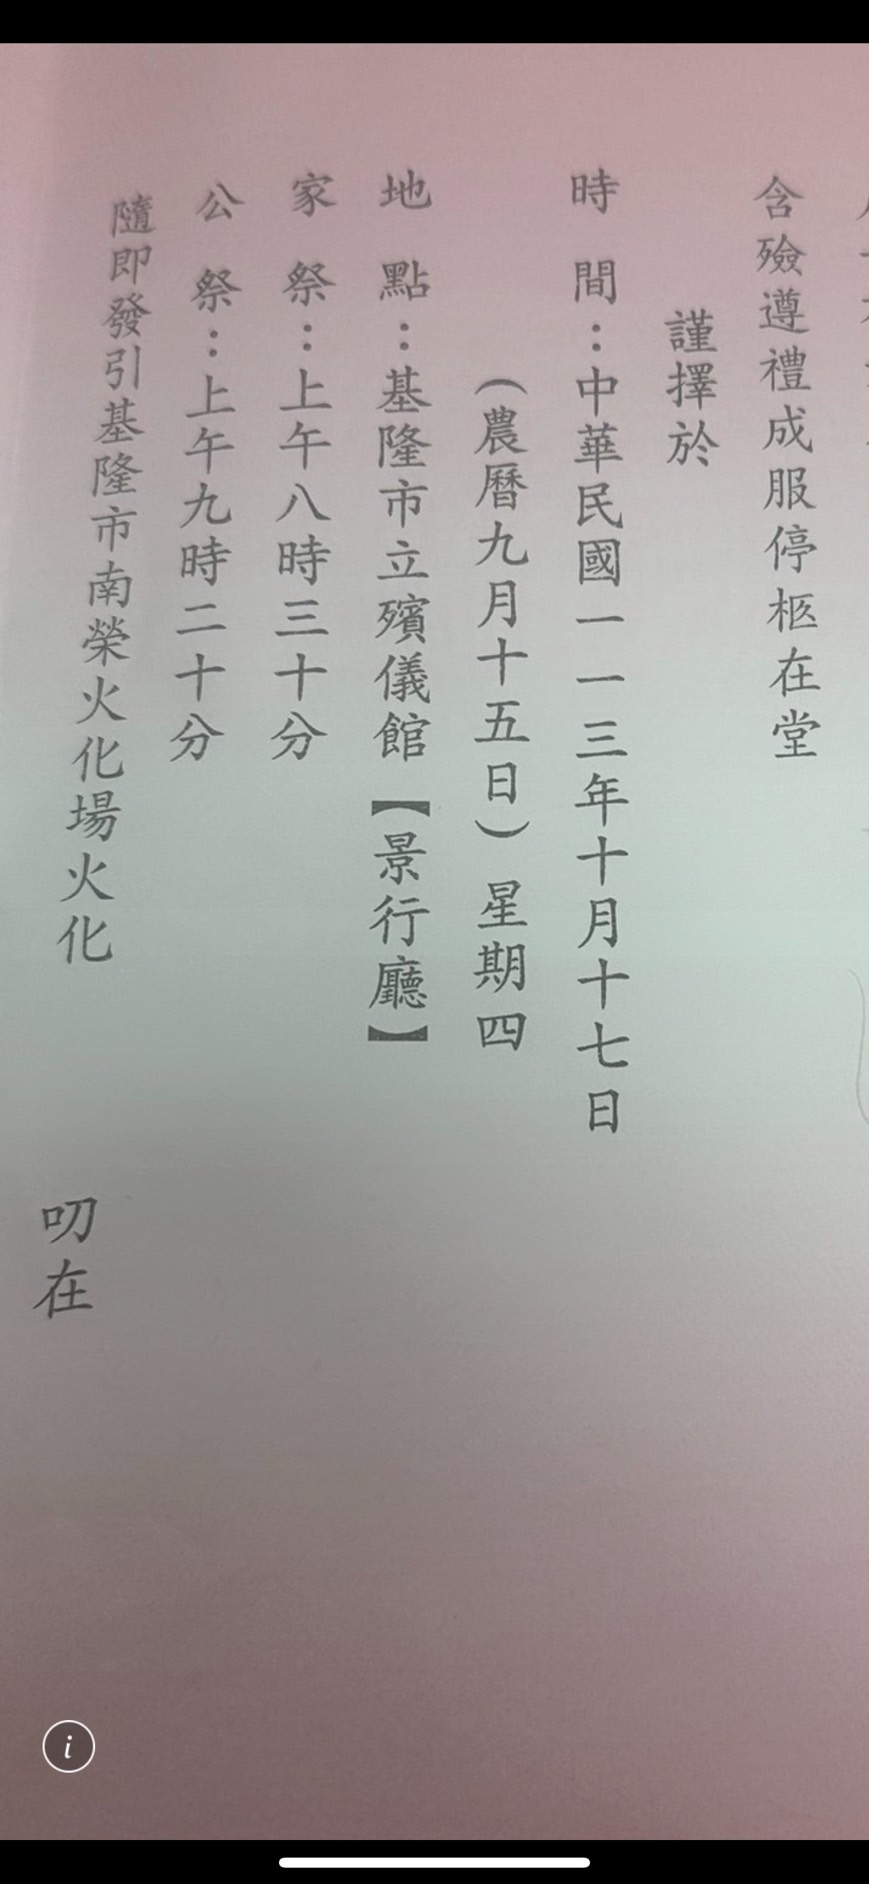 含殮遵禮成服停柩在堂
謹擇於
時間：中華民國一一三年十月十七日
（農曆九月十五日）星期四
地點：基隆市立殯儀館【景行廳】
家祭：上午八時三十分
公祭：上午九時二十分
隨即發引基隆市南榮火化場火化
叨在